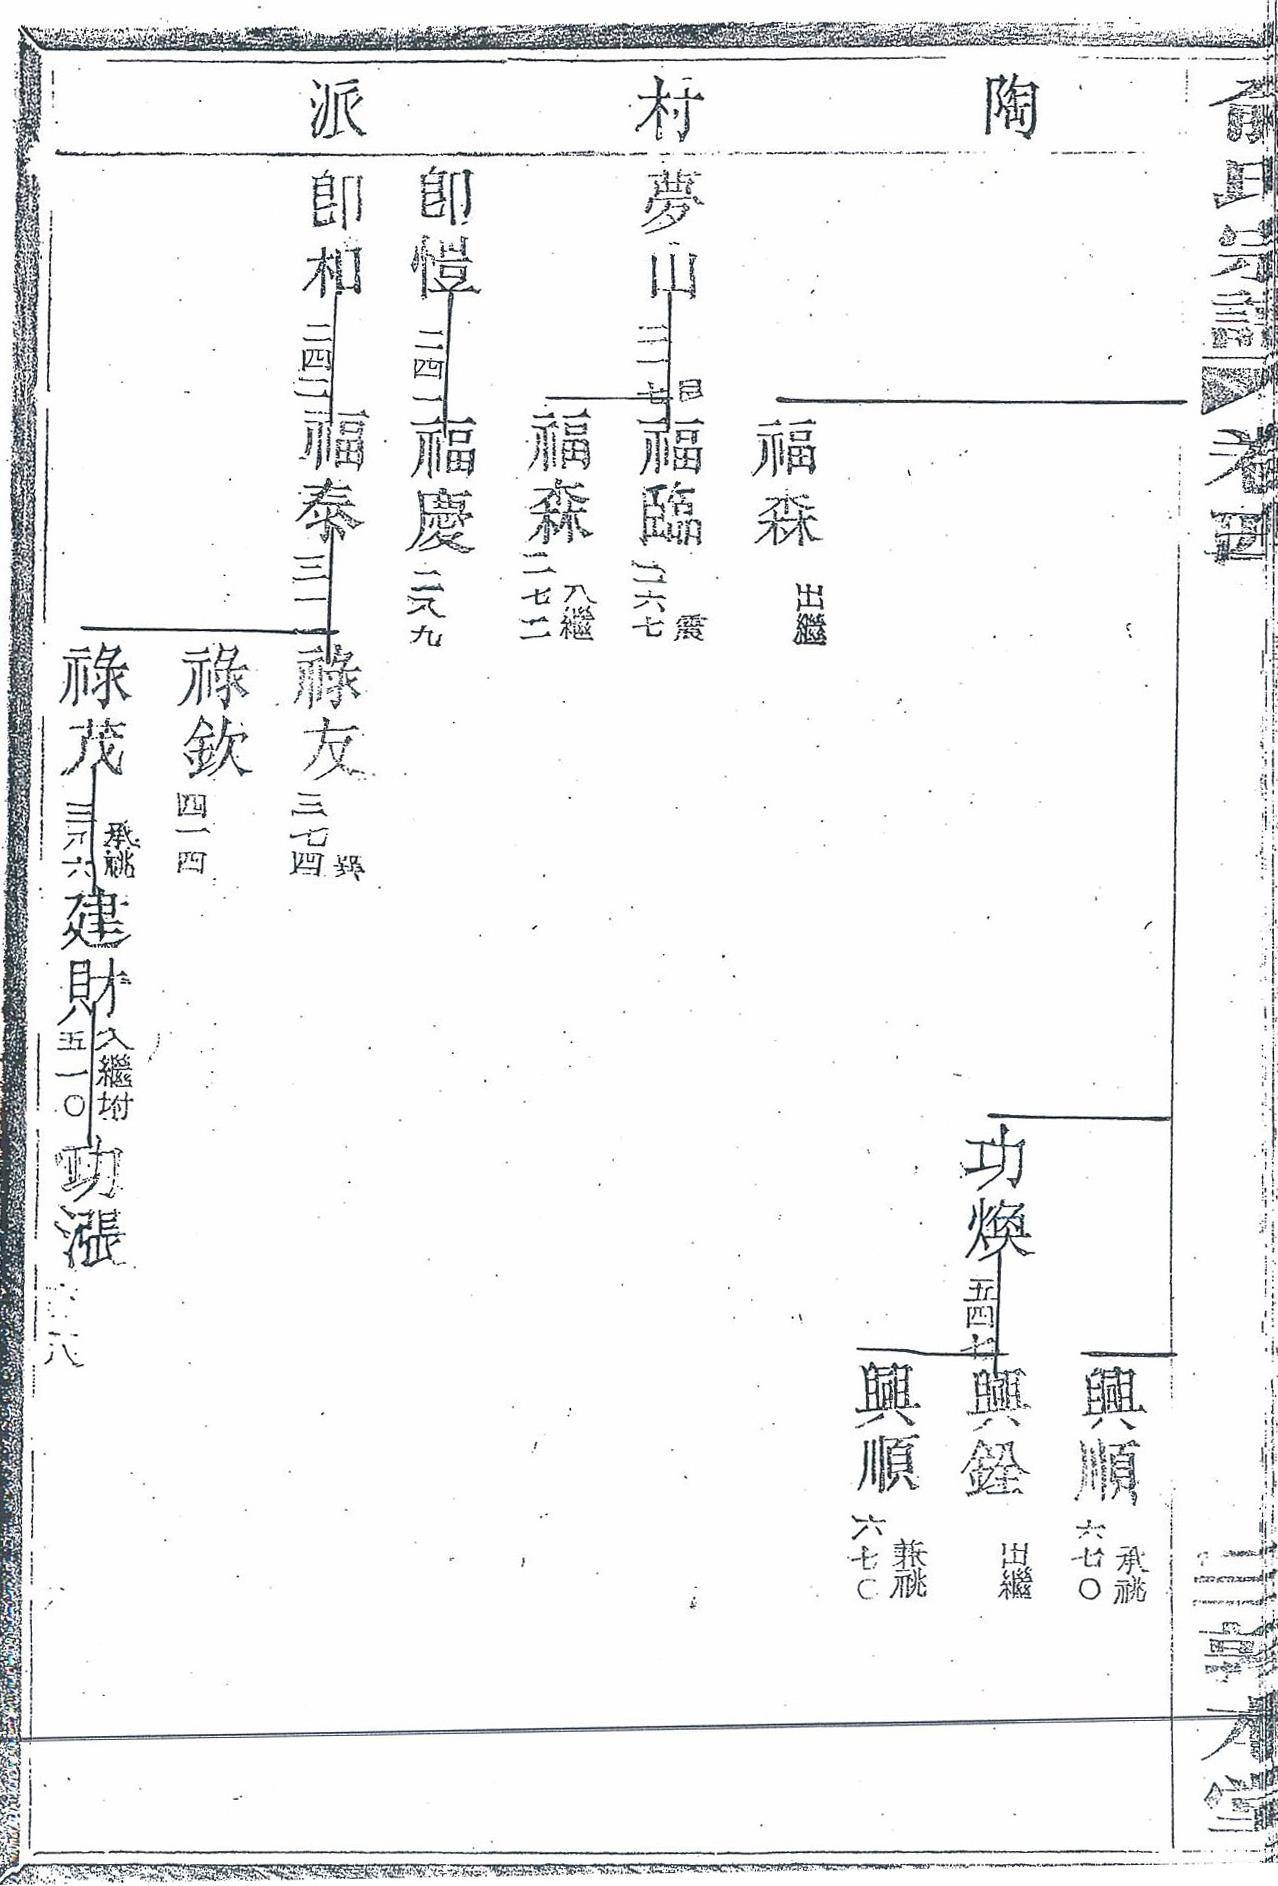 俞氏宗譜 卷四
陶村派
興順 六七〇 承祧
功煥 五四七
興銓 出繼
興順 六七〇 兼祧
福森 出繼
夢山 二一七
福臨 二六七
福森 二七二 入繼
卽愷 二四一
福慶 二八九
卽和 二四二
福泰 三一
祿友 三七四
祿欽 四一四
祿茂 三八六 承祧
建財 五一〇 入繼
功漲